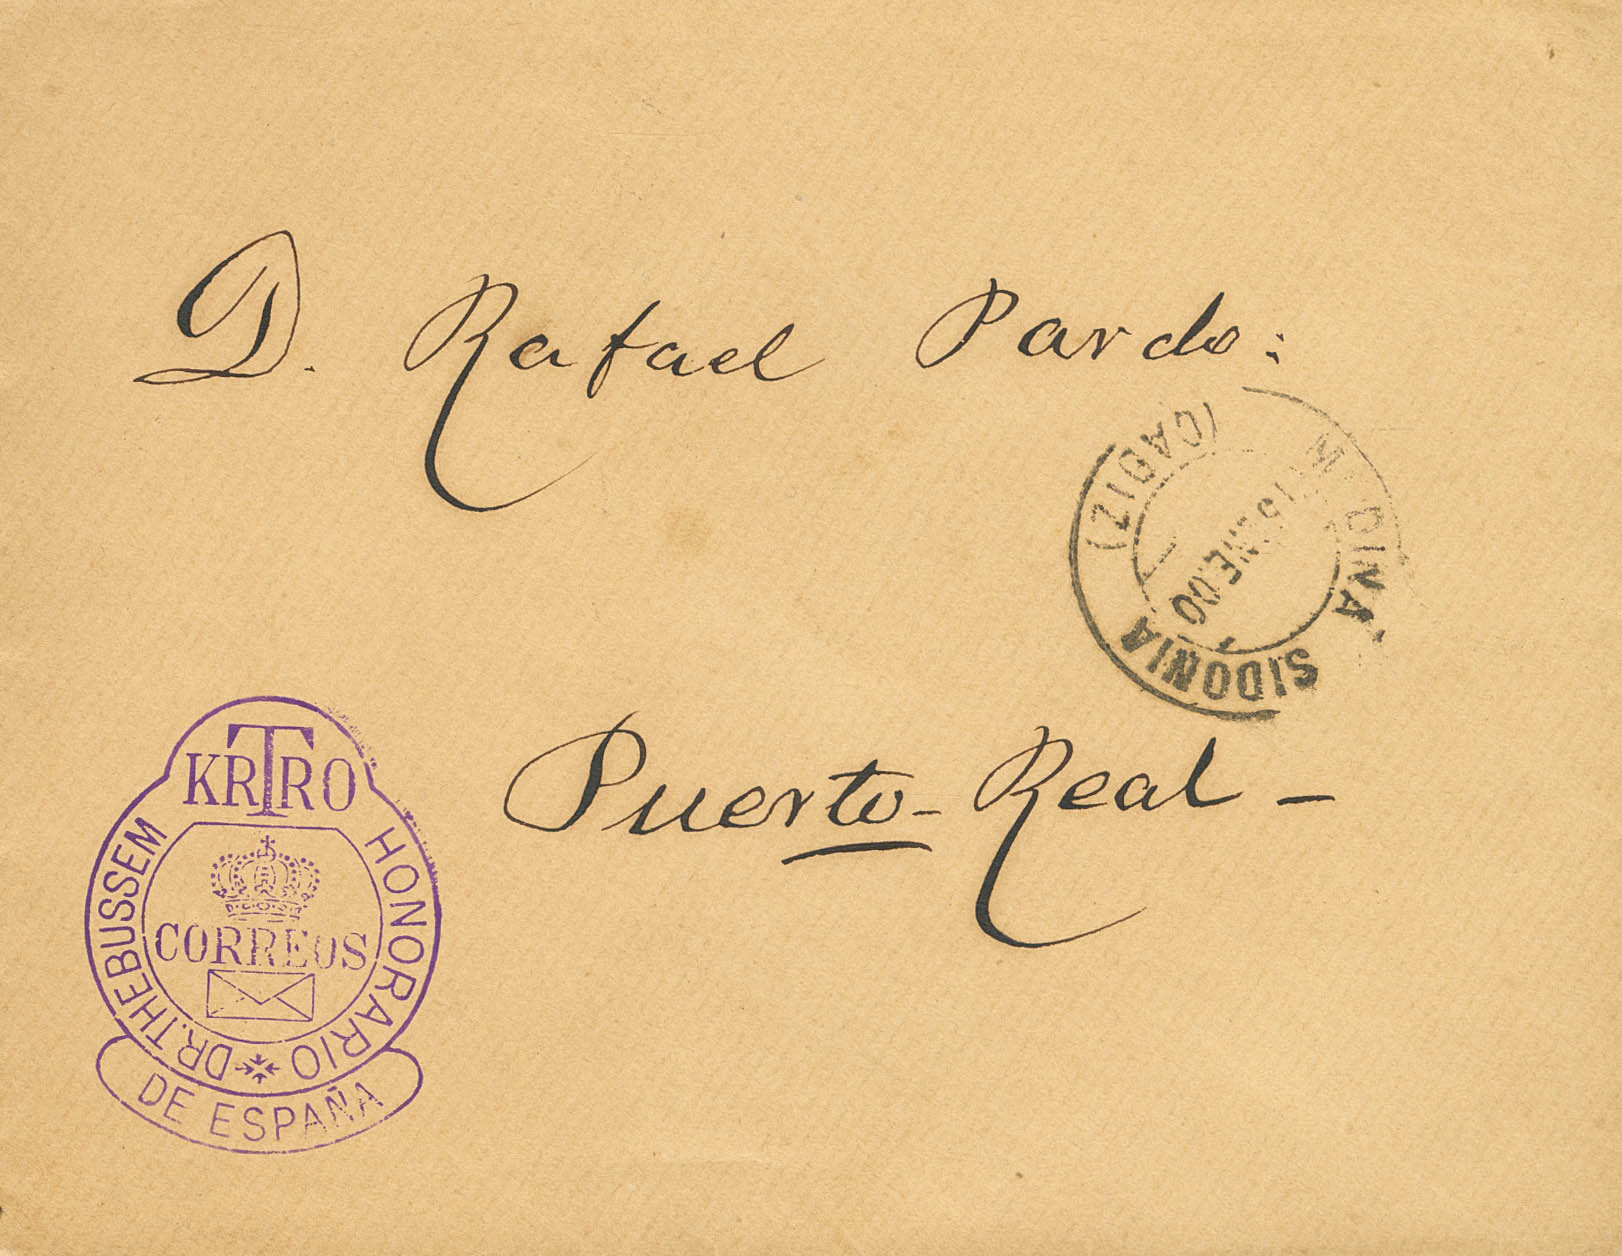 D. Rafael Pardo:
(CADIZ)
MEDINA SIDONIA
15 ENE 00
Puerto-Real-
KRTRO
DR. THEBUSSEM
HONORARIO
CORREOS
DE ESPAÑA